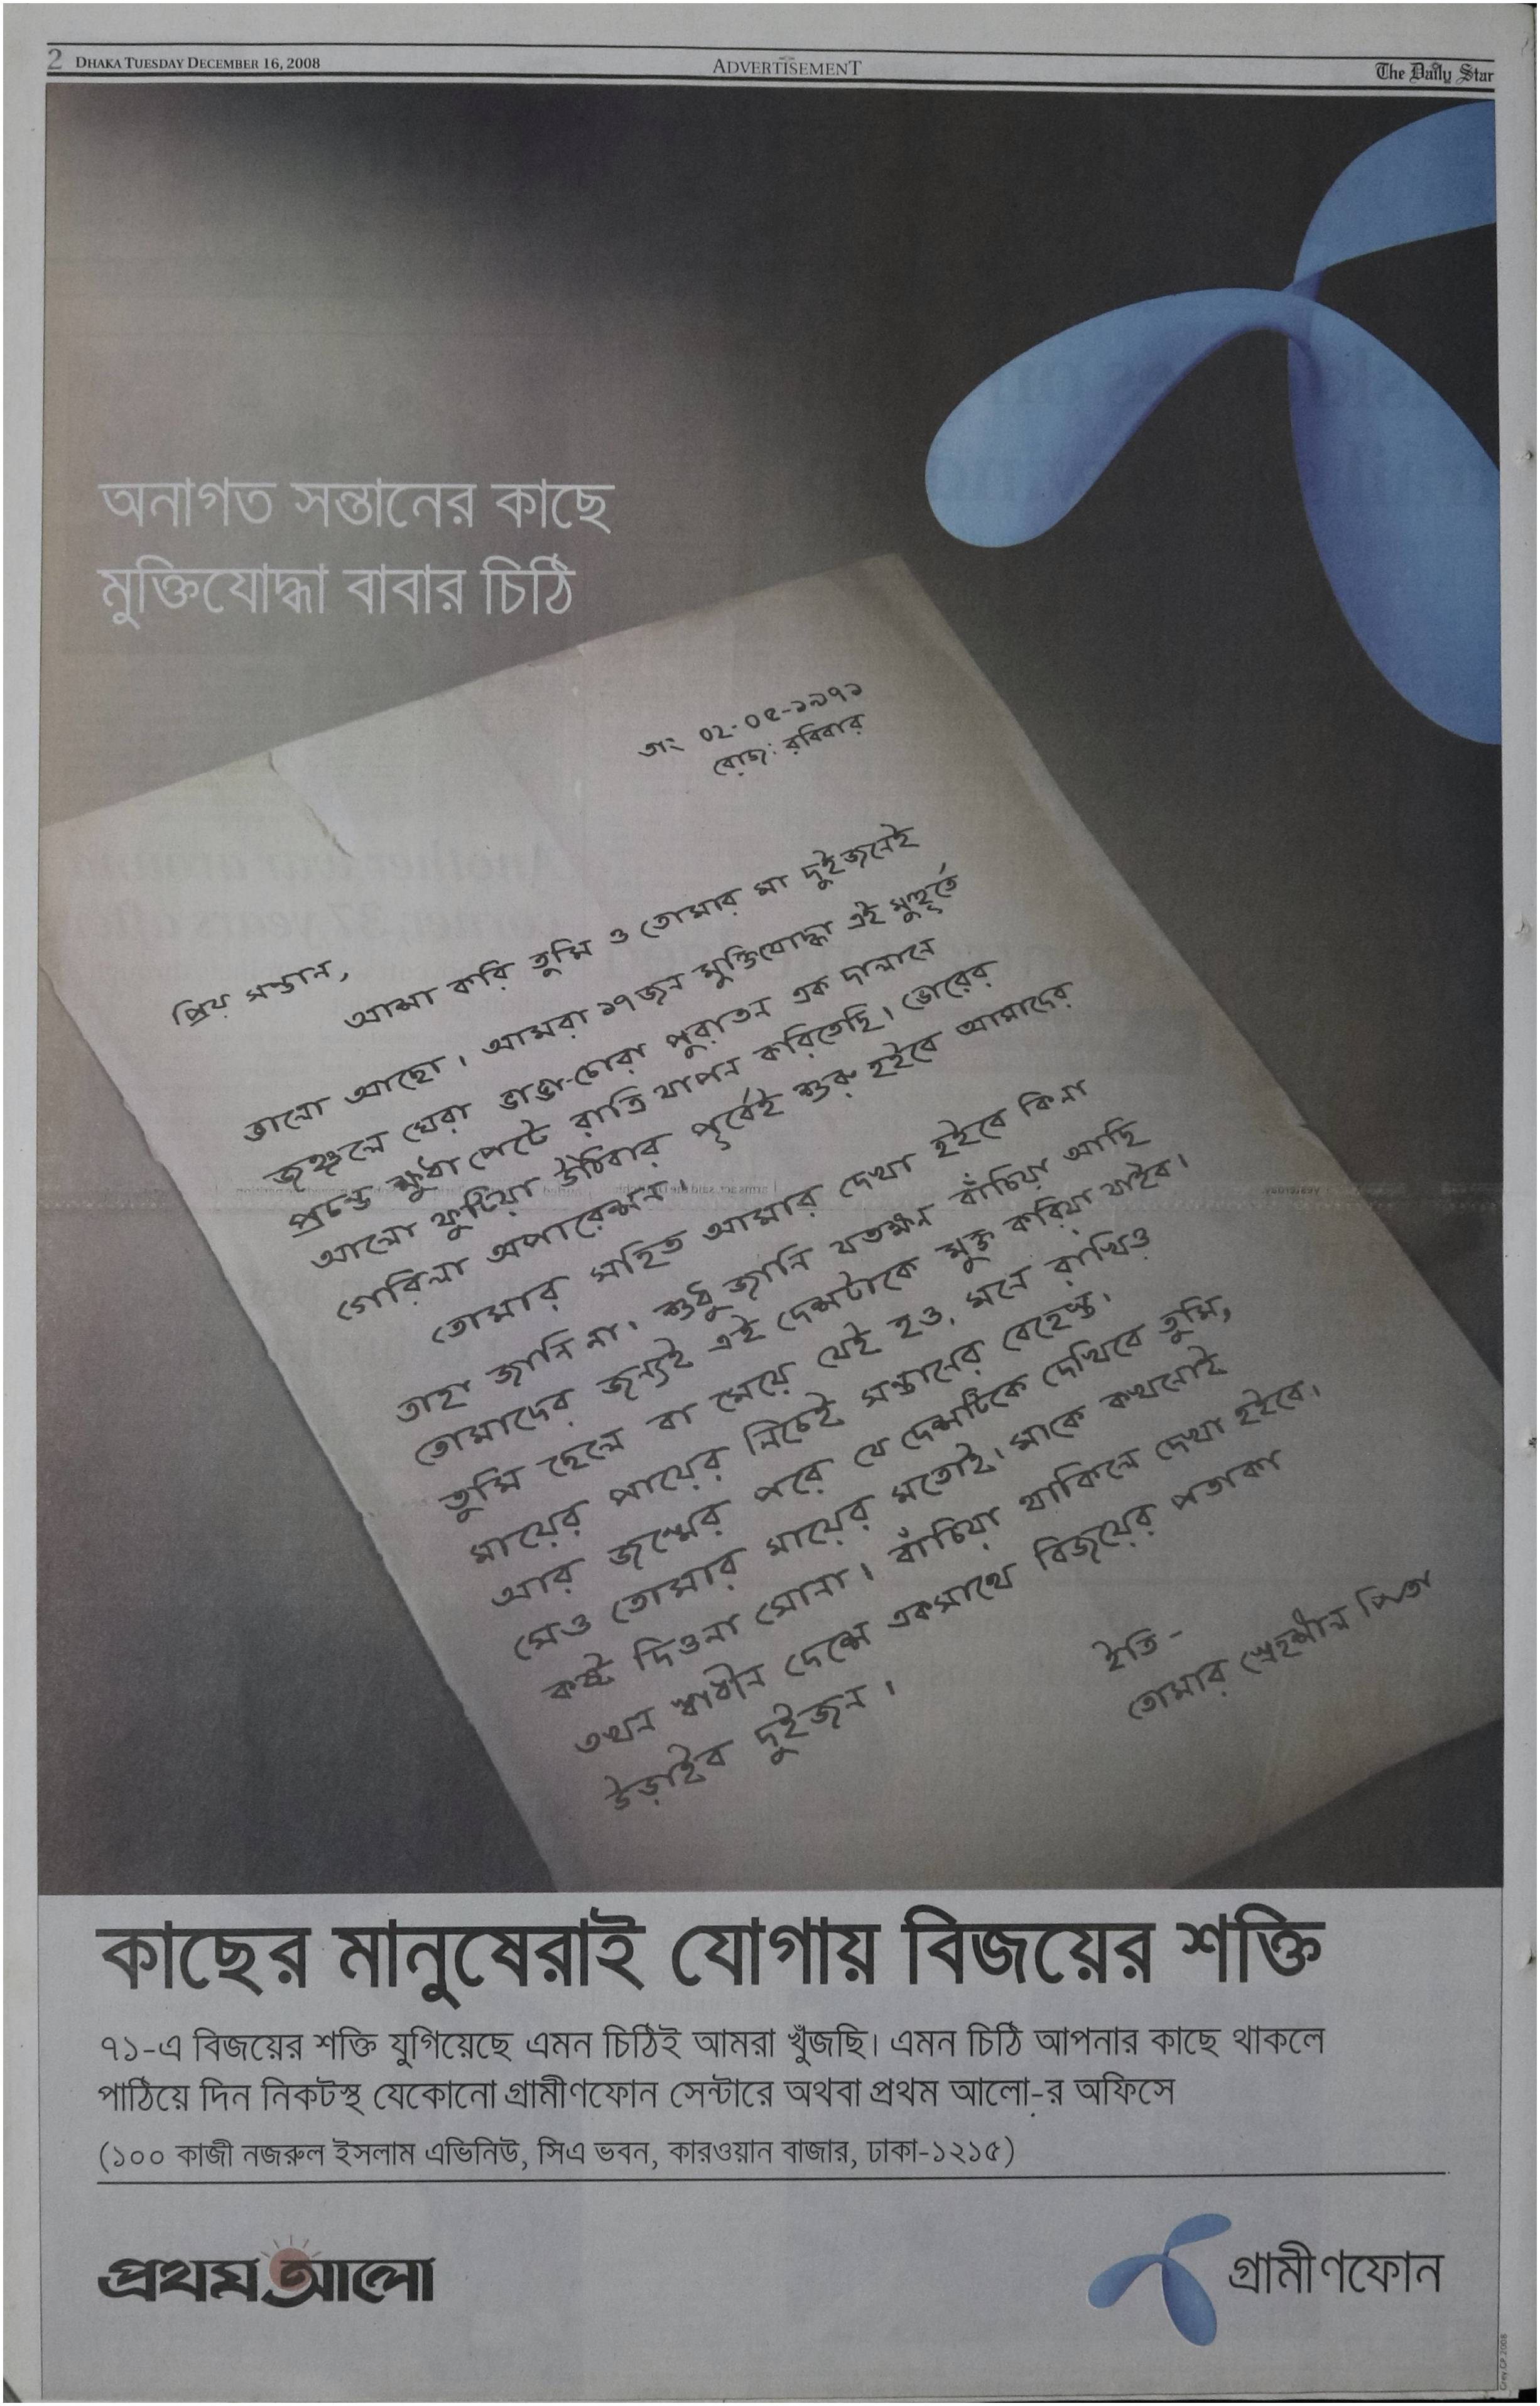 2 DHAKA TUESDAY DECEMBER 16, 2008
ADVERTISEMENT
The Daily Star
অনাগত সন্তানের কাছে
মুক্তিযোদ্ধা বাবার চিঠি
তাং ০২-০৫-১৯৭১
রোজ: রবিবার
প্রিয় সন্তান,
আশা করি তুমি ও তোমার মা দুইজনেই
ভালো আছো। আমরা ১৭জন মুক্তিযোদ্ধা এই মুহূর্তে
জঙ্গলে ঘেরা ভাঙা-চোরা পুরাতন এক দালানে
প্রচন্ড ক্ষুধা পেটে রাত্রি যাপন করিতেছি। ভোরের
আলো ফুটিয়া উঠিবার পূর্বেই শুরু হইবে আমাদের
গেরিলা অপারেশন।
তোমার সহিত আমার দেখা হইবে কিনা
তাহা জানি না। শুধু জানি যতক্ষন বাঁচিয়া আছি
তোমাদের জন্যই এই দেশটাকে মুক্ত করিয়া যাইব।
তুমি ছেলে বা মেয়ে যেই হও, মনে রাখিও
মায়ের পায়ের নিচেই সন্তানের বেহেস্ত।
আর জন্মের পরে যে দেশটিকে দেখিবে তুমি,
সেও তোমার মায়ের মতোই। মাকে কখনোই
কষ্ট দিওনা সোনা। বাঁচিয়া থাকিলে দেখা হইবে।
তখন স্বাধীন দেশে একসাথে বিজয়ের পতাকা
উড়াইব দুইজন।
ইতি -
তোমার স্নেহশীল পিতা
কাছের মানুষেরাই যোগায় বিজয়ের শক্তি
৭১-এ বিজয়ের শক্তি যুগিয়েছে এমন চিঠিই আমরা খুঁজছি। এমন চিঠি আপনার কাছে থাকলে
পাঠিয়ে দিন নিকটস্থ যেকোনো গ্রামীণফোন সেন্টারে অথবা প্রথম আলো-র অফিসে
(১০০ কাজী নজরুল ইসলাম এভিনিউ, সিএ ভবন, কারওয়ান বাজার, ঢাকা-১২১৫)
প্রথম আলো
গ্রামীণফোন